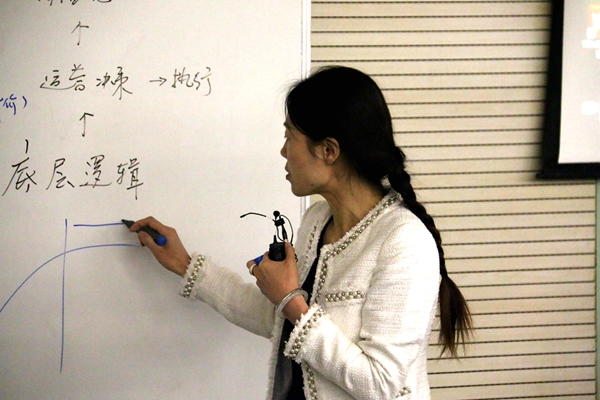 运营决策→执行
底层逻辑